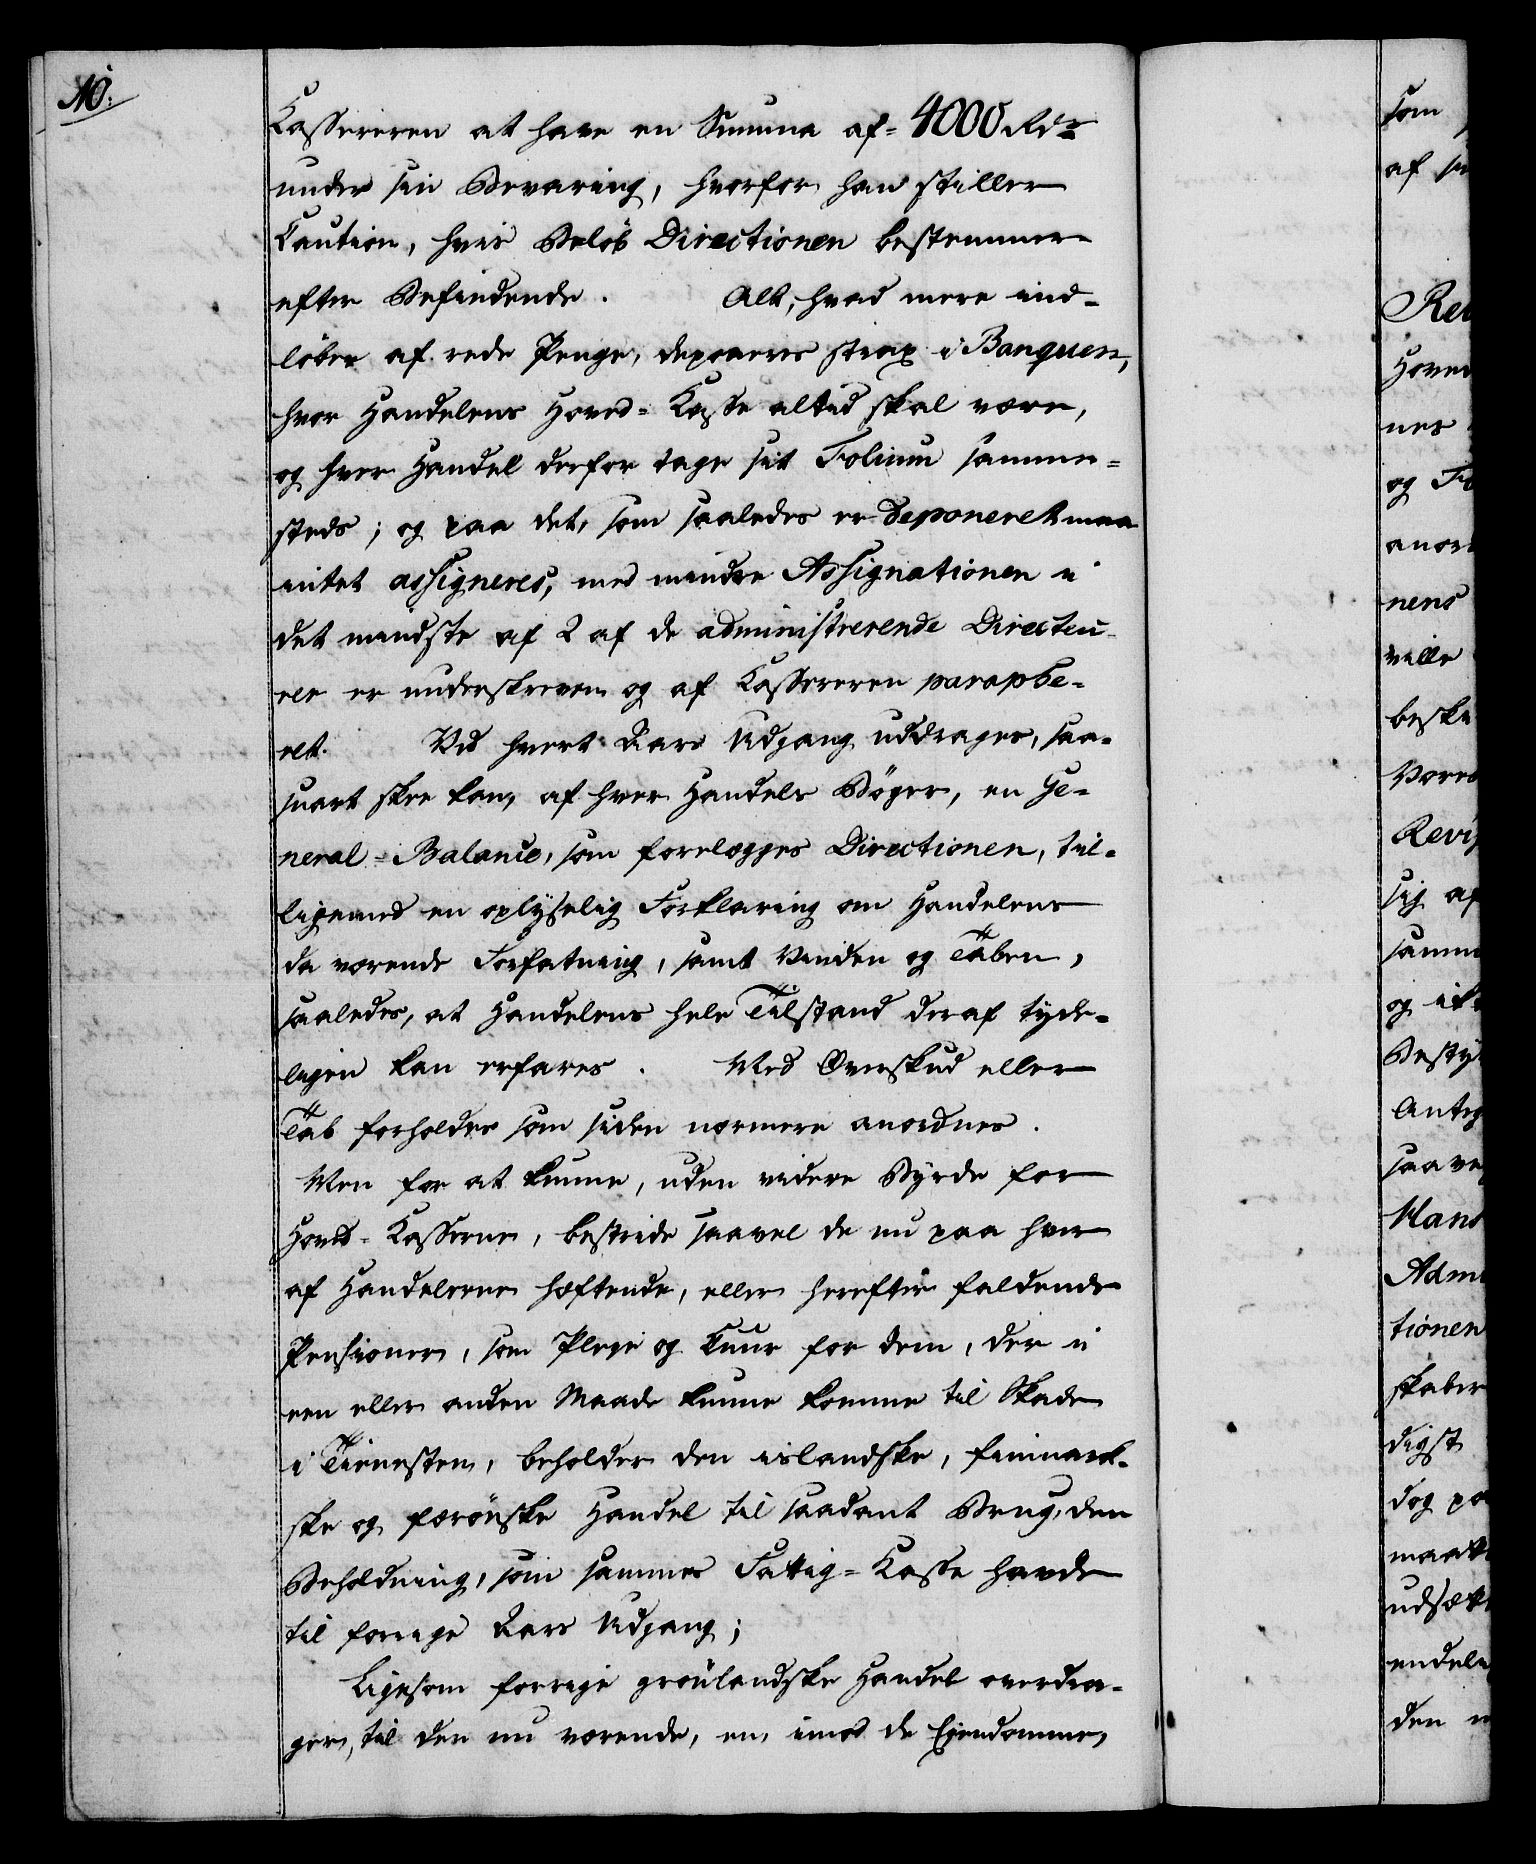 No:
Cassereren at have en Summa af 4000 Rdr
under sin Bevaring, hvorfor han stiller
Caution, hvis Beløb Directionen bestemmer
efter Befindende. Alt, hvad mere ind-
løber af rede Penge, deponeres strax i Banquen,
hvor Handelens Hoved-Casse altid skal være,
og hver Handel derfor tage sit Folium samme-
steds; og paa det, som saaledes er deponeret maa
intet assigneres, med mindre Assignationen i
det mindste af 2 af de administrerende Directeu-
rer er underskreven og af Cassereren paraphe-
ret. Ved hvert Aars Udgang uddrages, saa-
snart skee kan, af hver Handels Bøger, en Ge-
neral-Balance, som forelægges Directionen, til-
ligemed en oplyselig Forklaring om Handelens
da værende Forfatning, samt Vinden og Taben,
saaledes, at Handelens hele Tilstand deraf tyde-
ligen kan erfares. Med Overskud eller
Tab forholdes som siden nærmere anordnes.
Men for at kunne, uden videre Byrde for
Hoved-Casserne, bestride saavel de nu paa hver
af Handelerne hæftende, eller herefter faldende
Pensioner, som Pleje og Cuur for dem, der i
een eller anden Maade kunne komme til Skade
i Tienesten, beholder den islandske, finmark-
ske og færøiske Handel til saadant Brug, den
Beholdning, som sammes Fattig-Casse havde
til forrige Aars Udgang;
Ligesom forrige grønlandske Handel overdra-
ger, til den nu værende, en, imod de Ejendomme,
som
af
Hoved
nes
og
nens
ville
beske
sig af
samm
og
tionen
skaber
digst
dog
den